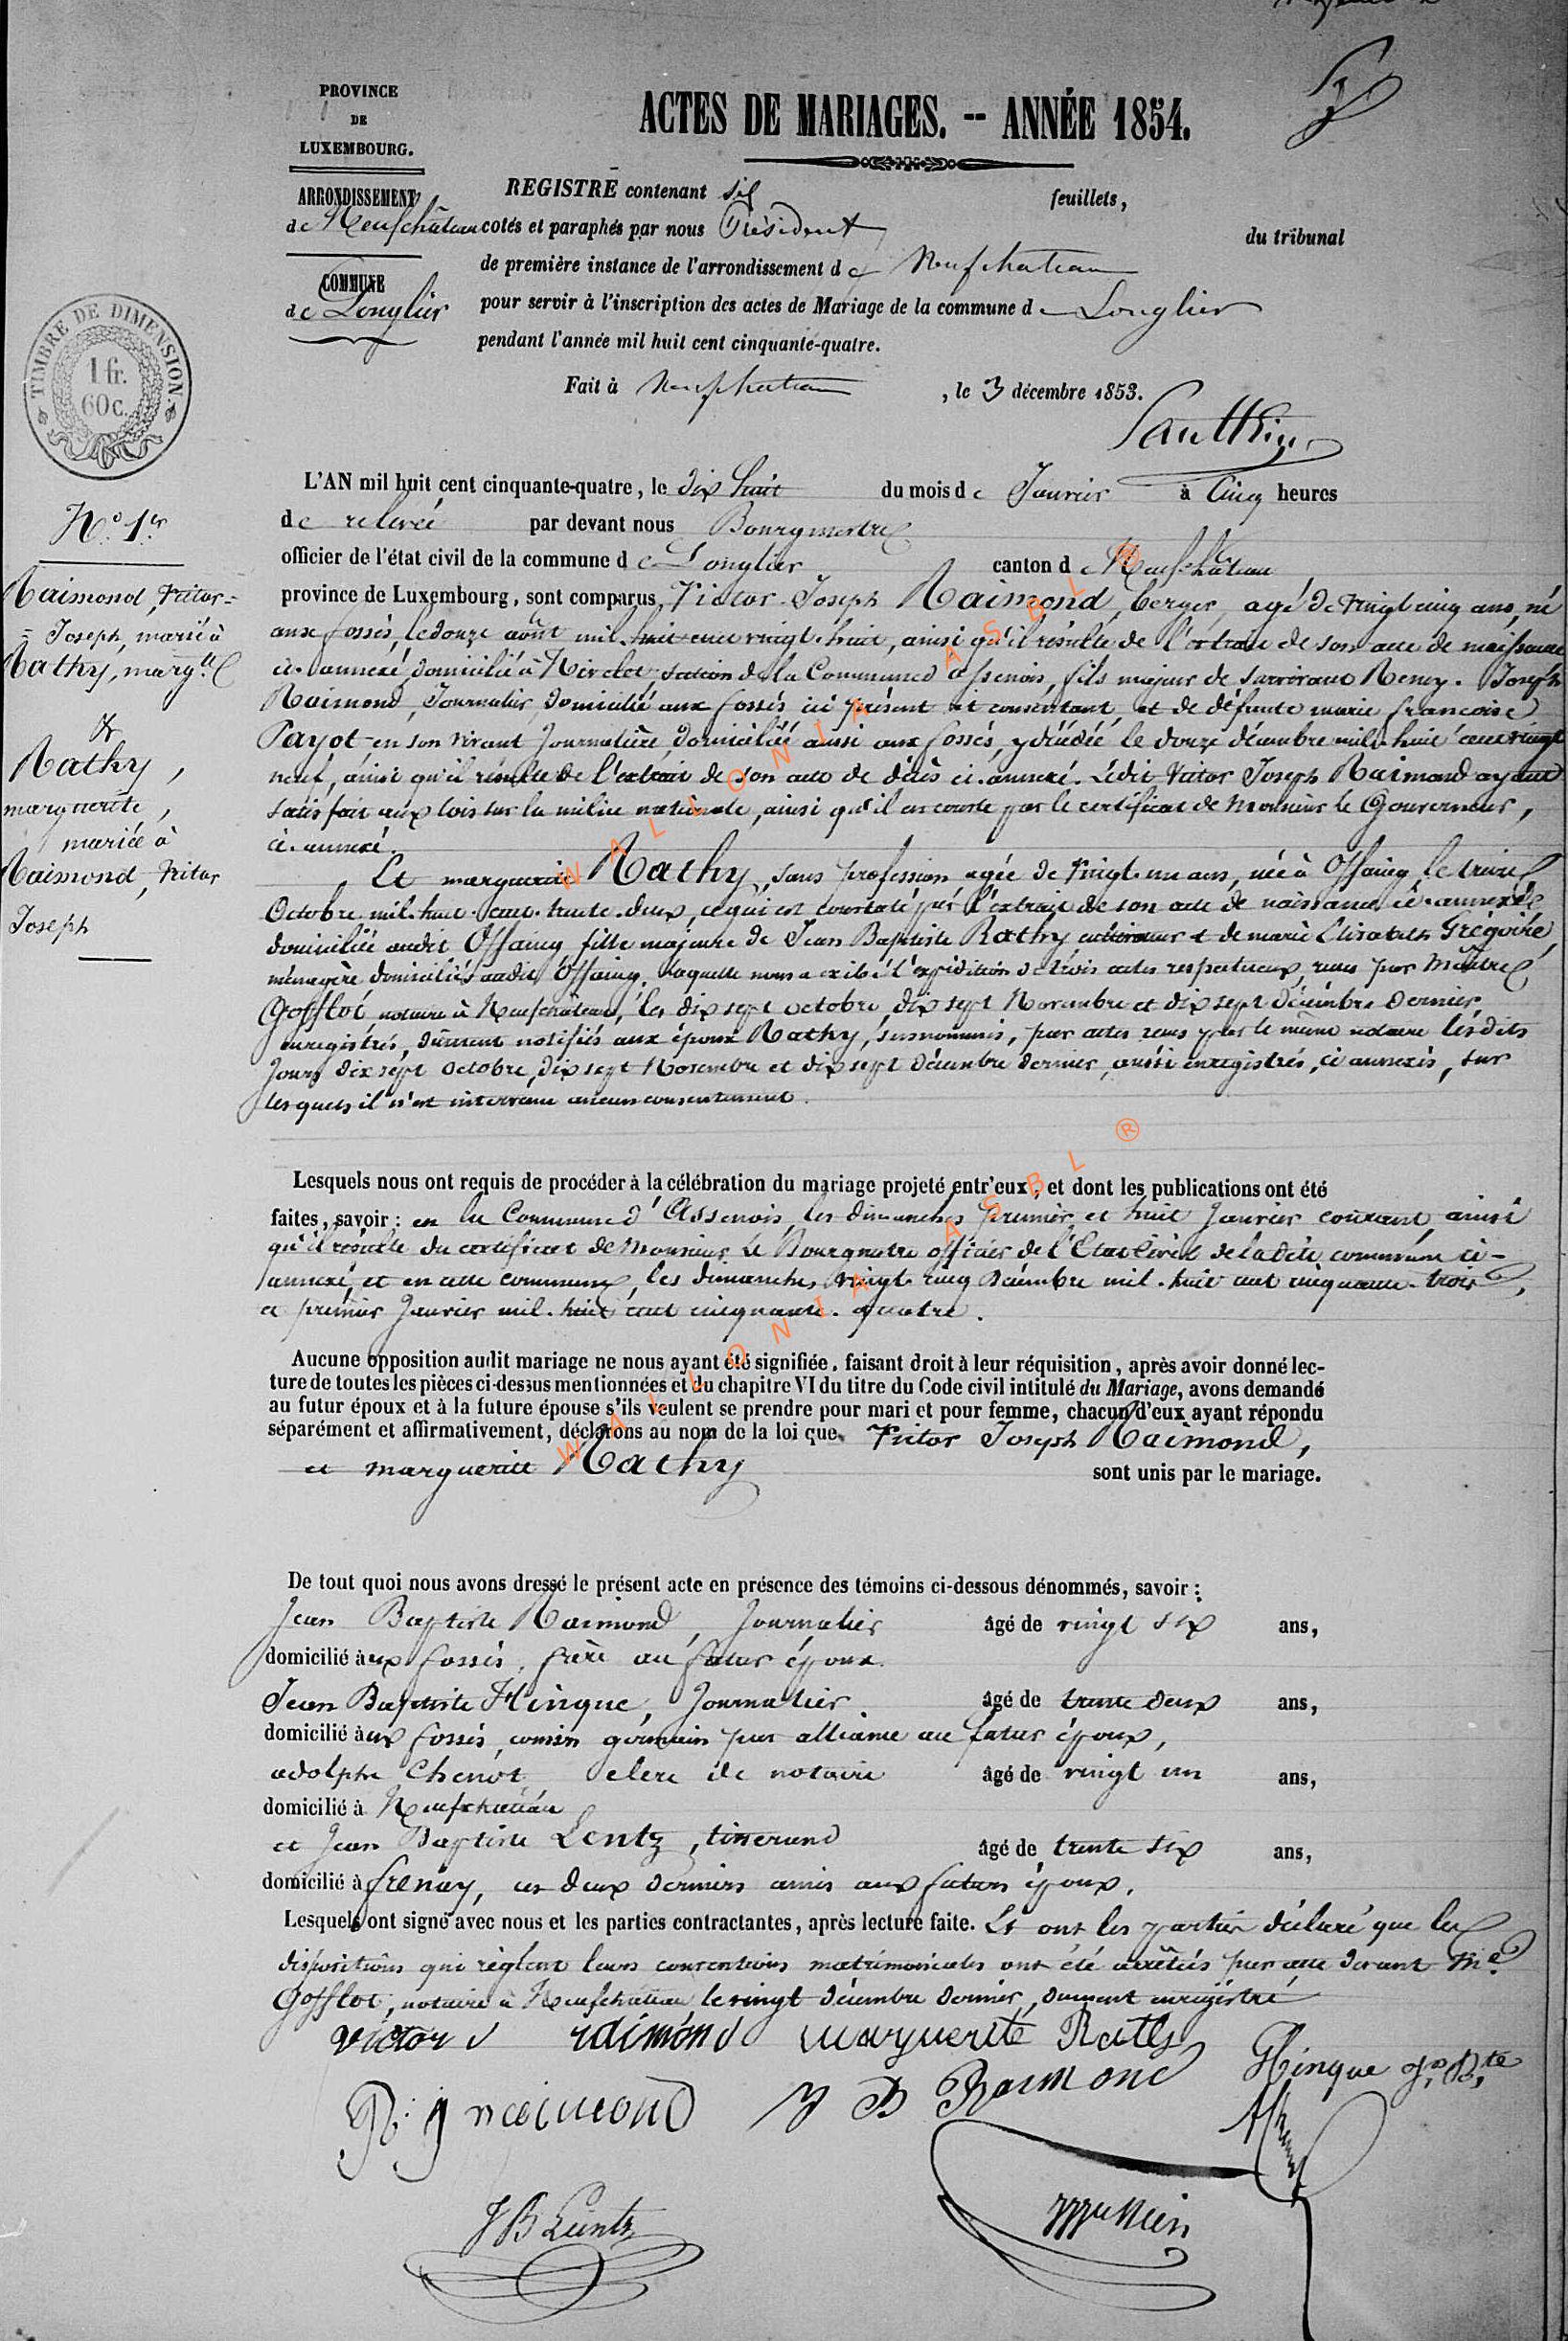 PROVINCE
DE
LUXEMBOURG.
ARRONDISSEMENT
de Neufchâteau
COMMUNE
de Longlier
ACTES DE MARIAGES. -- ANNÉE 1854.
REGISTRE contenant six feuillets,
cotés et paraphés par nous Président du tribunal
de première instance de l'arrondissement de Neufchateau
pour servir à l'inscription des actes de Mariage de la commune de Longlier
pendant l'année mil huit cent cinquante-quatre.
Fait à Neufchateau, le 3 décembre 1853.
TIMBRE DE DIMENSION
1 fr.
60 c.
N.° 1.er
Raimond, Victor=
=Joseph, marié à
Rathy, marg.te
&
Rathy,
marguerite,
mariée à
Raimond, Victor
Joseph
L'AN mil huit cent cinquante-quatre, le dix huit du mois de Janvier à Cinq heures
de relevée par devant nous Bourgmestre
officier de l'état civil de la commune de Longlier canton de Neufchâteau
province de Luxembourg, sont comparus Victor-Joseph Raimond, berger, agé de vingt cinq ans, né
aux fossés, le douze août mil-huit-cent vingt-huit, ainsi qu'il résulte de l'extrait de son acte de naissance
ci-annexé, domicilié à section de la Commune d'assenois, fils majeur de survivant Remy-Joseph
Raimond, Journalier, domicilié aux fossés ici présent et consentant, et de défunte marie françoise
Payot en son vivant Journalière, domiciliée aussi aux fossés, y décédée le douze décembre mil-huit cent vingt
neuf, ainsi qu'il résulte de l'extrait de son acte de décès ci-annexé. Ledit Victor Joseph Raimond ayant
satisfait aux lois sur la milice nationale, ainsi qu'il en conste par le certificat de Monsieur le Gouverneur,
ci-annexé.
Et marguerite Rathy, sans profession agée de vingt-un ans, née à Offaing, le treize
Octobre mil-huit-cent-trente-deux, ce qui est constaté par l'extrait de son acte de naissance ci-annexé
domiciliée audit Offaing fille majeure de Jean Baptiste Rathy cultivateur et de marie Elisabeth Grégoire,
ménagère domiciliés audit Offaing, laquelle nous a exibé l'expédition de trois actes respectueux, reçus par Maître
Gofflot notaire à Neufchâteau, les dix sept octobre, dix sept Novembre et dix sept décembre dernier,
enregistrés, dûment notifiés aux époux Rathy, susnommés, par actes reçus par le même notaire lesdits
Jours dix sept Octobre, dix sept Novembre et dix sept décembre dernier, aussi enregistrés, ci annexés, sur
lesquels il n'est intervenu aucun consentement.
Lesquels nous ont requis de procéder à la célébration du mariage projeté entr'eux, et dont les publications ont été
faites, savoir : en la Commune d'Assenois, les dimanches premier et huit Janvier courant, ainsi
qu'il résulte du certificat de Monsieur Le Bourgmestre officier de l'Etat Civil de ladite commune ci-
annexé, et en cette commune, les dimanches vingt-cinq décembre mil-huit cent cinquante-trois,
et premier Janvier mil-huit cent cinquante-quatre.
Aucune opposition audit mariage ne nous ayant été signifiée, faisant droit à leur réquisition, après avoir donné lec-
ture de toutes les pièces ci-dessus mentionnées et du chapitre VI du titre du Code civil intitulé du Mariage, avons demandé
au futur époux et à la future épouse s'ils veulent se prendre pour mari et pour femme, chacun d'eux ayant répondu
séparément et affirmativement, déclarons au nom de la loi que Victor Joseph Raimond,
et marguerite Rathy sont unis par le mariage.
De tout quoi nous avons dressé le présent acte en présence des témoins ci-dessous dénommés, savoir :
Jean Baptiste Raimond, Journalier âgé de vingt six ans,
domicilié aux fossés, frère au futur époux.
Jean Baptiste Hinque, Journalier âgé de trente deux ans,
domicilié aux fossés, cousin germain par alliance au futur époux,
adolphe Chenot, clerc de notaire âgé de vingt un ans,
domicilié à Neufchateau
et Jean Baptiste Lentz, tisserand âgé de trente six ans,
domicilié à frenoy, ces deux derniers amis aux futurs époux.
Lesquels ont signé avec nous et les parties contractantes, après lecture faite. Et ont les parties déclaré que les
dispositions qui règlent leurs conventions matrimoniales ont été arrêtées par acte devant M.e
Gofflot, notaire à Neufchateau le vingt décembre dernier, dument enregistré
victor J raimond marguerite Rathy Hinque J. B.te
R. J raimond J B Raimond
J B Lentz
WALLONIA ASBL ®
WALLONIA ASBL ®